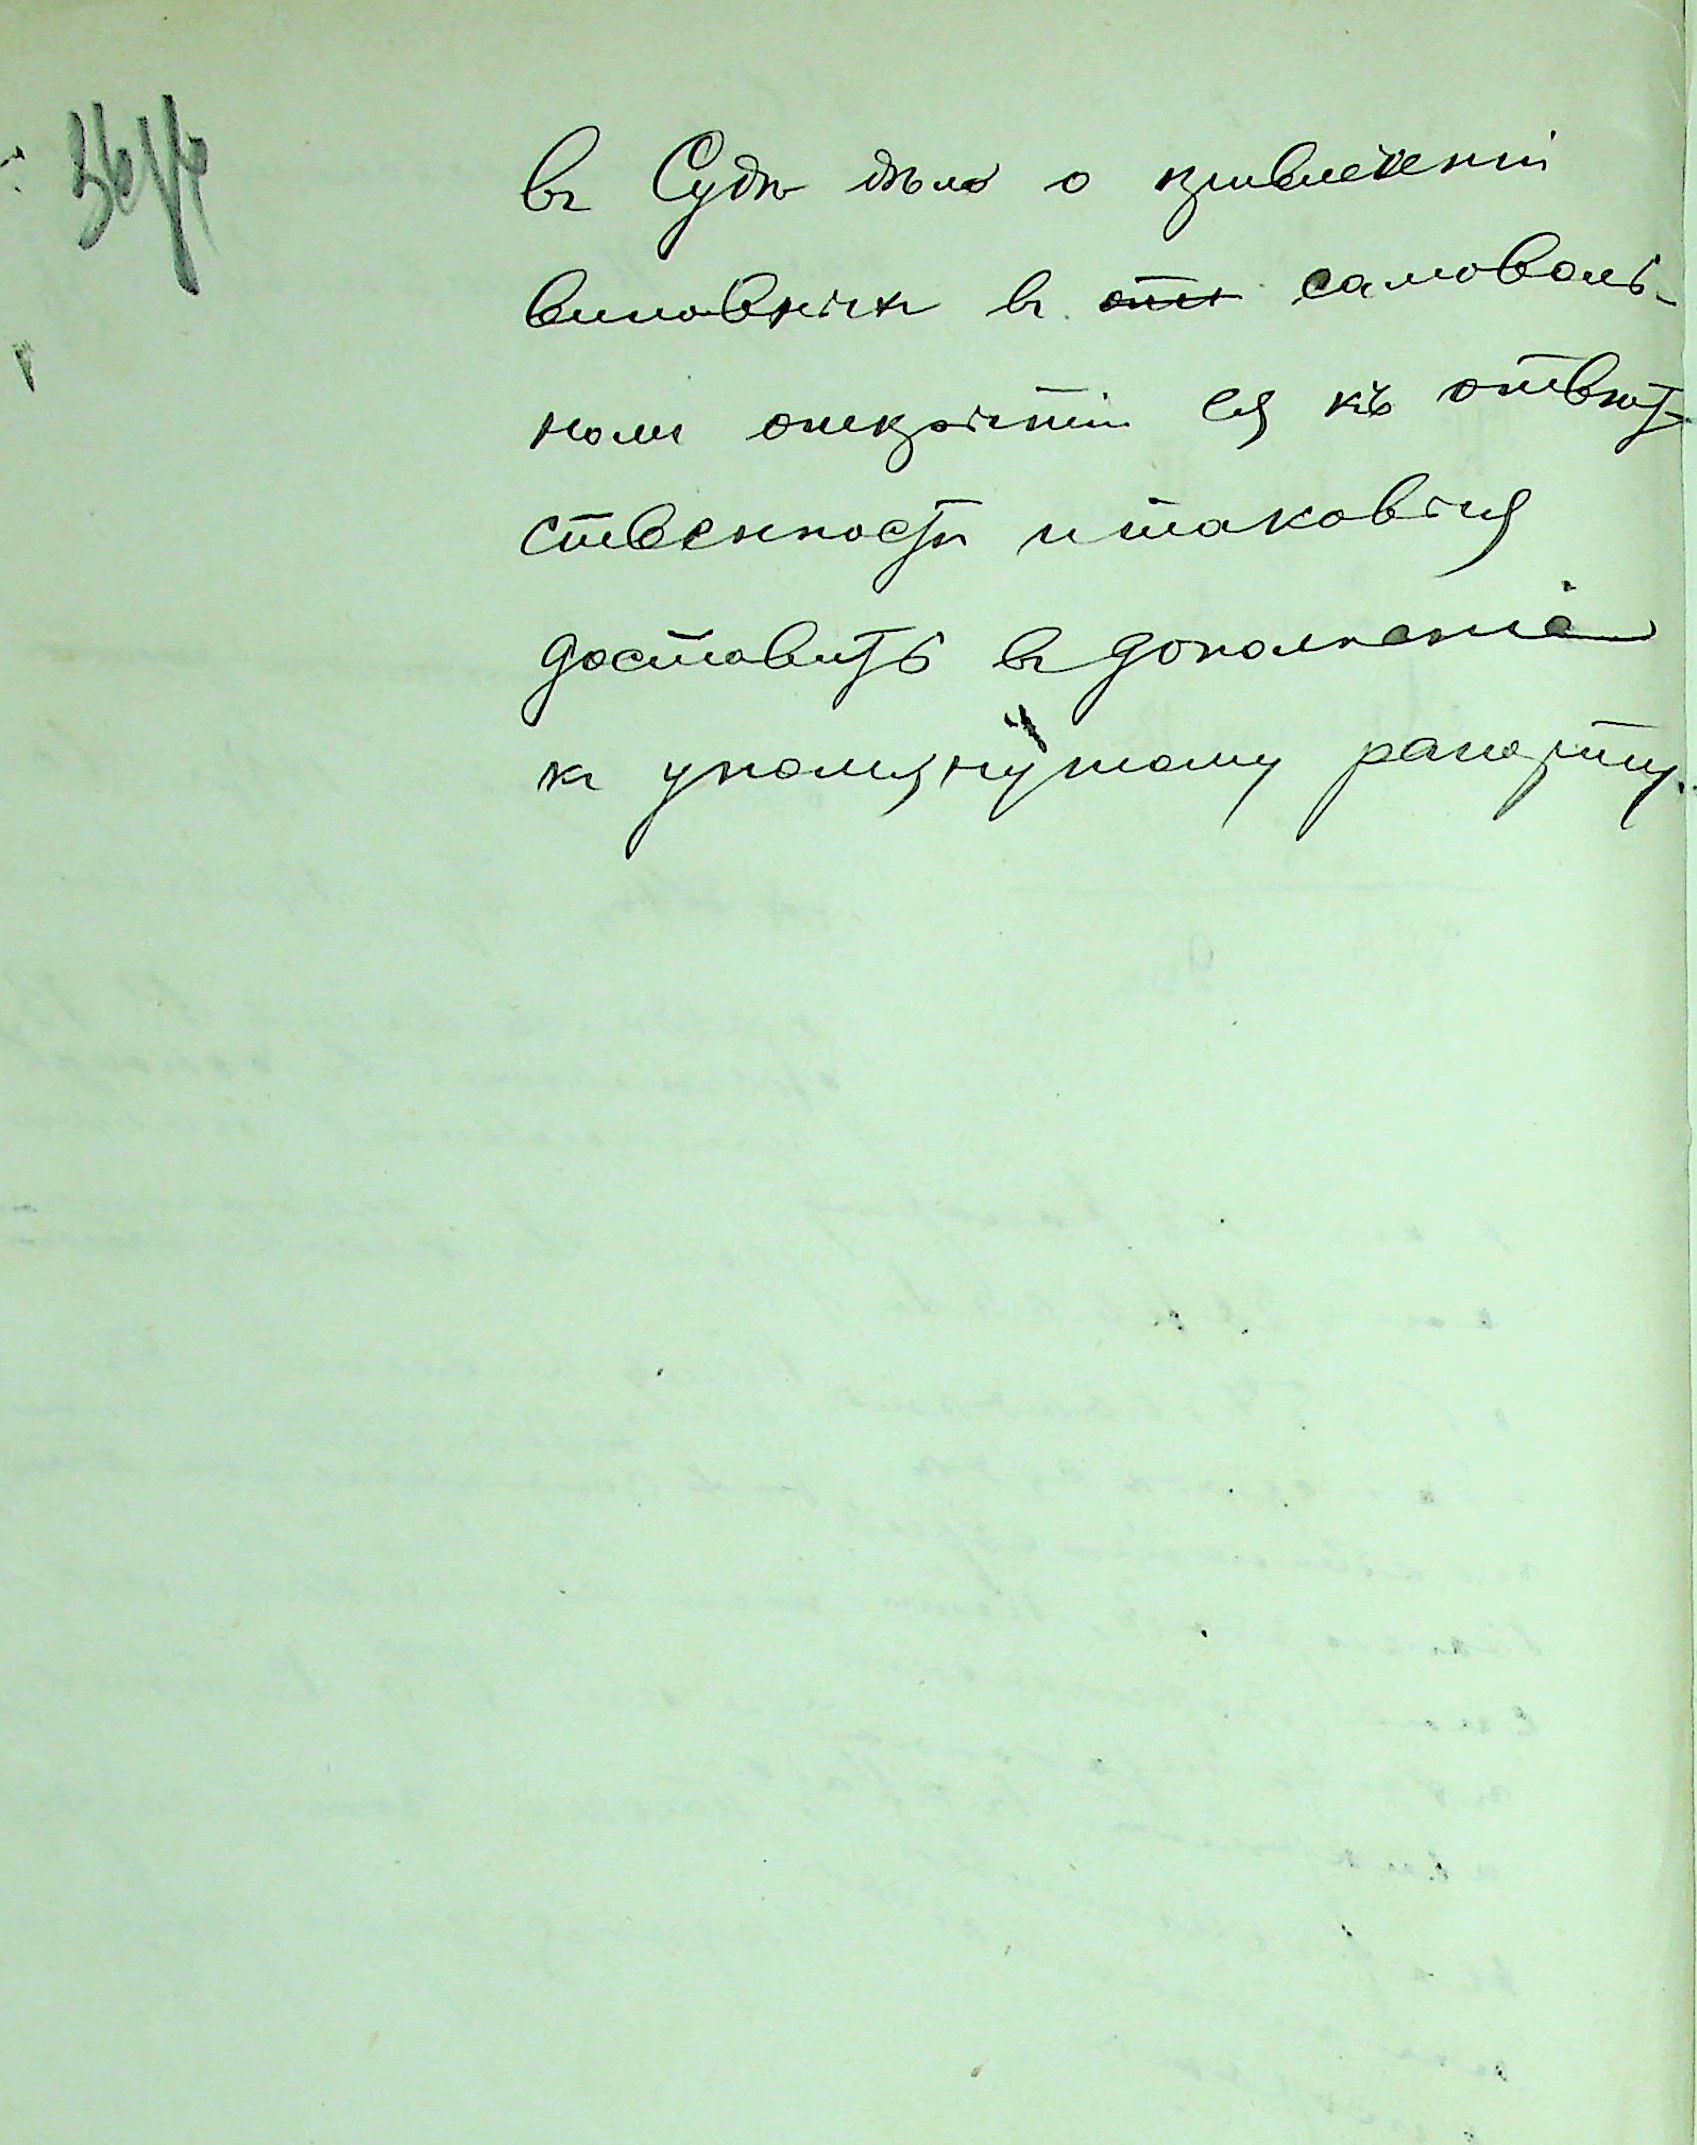 въ Судѣ дѣло о привлеченіи
виновныхъ въ отк самоволь-
номъ открытіи ея къ отвѣт-
ственности и таковыя
доставить въ дополненіе
къ упомянутому рапорту.